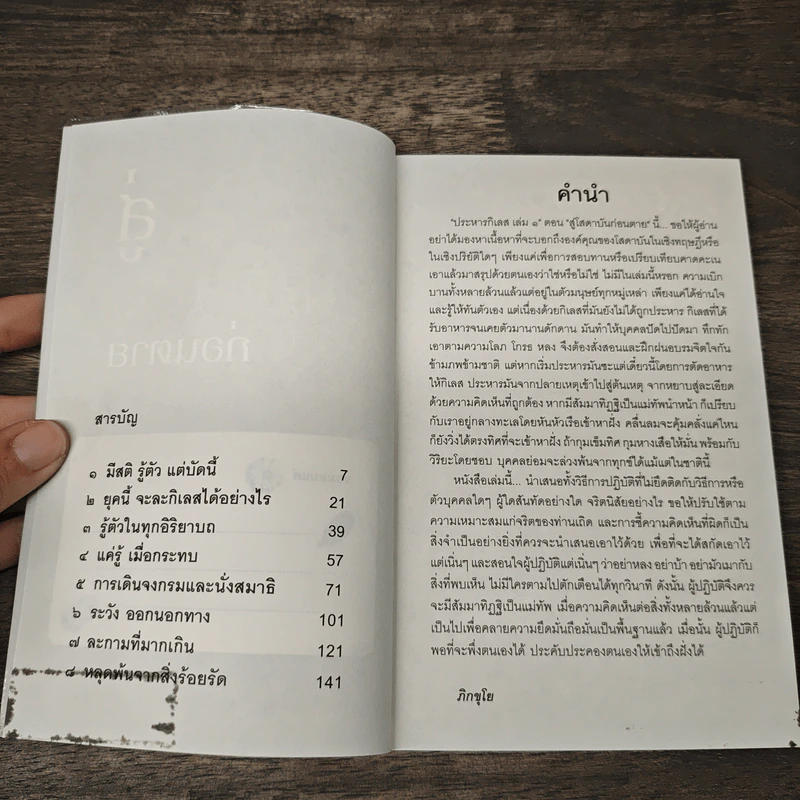 สารบัญ
๑ มีสติ รู้ตัว แต่บัดนี้ 7
๒ ยุคนี้ จะละกิเลสได้อย่างไร 21
๓ รู้ตัวในทุกอิริยาบถ 39
๔ แค่รู้ เมื่อกระทบ 57
๕ การเดินจงกรมและนั่งสมาธิ 71
๖ ระวัง ออกนอกทาง 101
๗ ละกามที่มากเกิน 121
๘ หลุดพ้นจากสิ่งร้อยรัด 141
คำนำ
"ประหารกิเลส เล่ม ๑" ตอน "สู่โสดาบันก่อนตาย" นี้... ขอให้ผู้อ่าน
อย่าได้มองหาเนื้อหาที่จะบอกถึงองค์คุณของโสดาบันในเชิงทฤษฎีหรือ
ในเชิงปริยัติใดๆ เพียงแค่เพื่อการสอบทานหรือเปรียบเทียบคาดคะเน
เอาแล้วมาสรุปด้วยตนเองว่าใช่หรือไม่ใช่ ไม่มีในเล่มนี้หรอก ความเบิก
บานทั้งหลายล้วนแล้วแต่อยู่ในตัวมนุษย์ทุกหมู่เหล่า เพียงแค่ได้อ่านใจ
และรู้ให้ทันตัวเอง แต่เนื่องด้วยกิเลสที่มันยังไม่ได้ถูกประหาร กิเลสที่ได้
รับอาหารจนเคยตัวมานานดักดาน มันทำให้บุคคลปัดไปปัดมา ทึกทัก
เอาตามความโลภ โกรธ หลง จึงต้องสั่งสอนและฝึกฝนอบรมจิตใจกัน
ข้ามภพข้ามชาติ แต่หากเริ่มประหารมันซะแต่เดี๋ยวนี้โดยการตัดอาหาร
ให้กิเลส ประหารมันจากปลายเหตุเข้าไปสู่ต้นเหตุ จากหยาบสู่ละเอียด
ด้วยความคิดเห็นที่ถูกต้อง หากมีสัมมาทิฏฐิเป็นแม่ทัพนำหน้า ก็เปรียบ
กับเราอยู่กลางทะเลโดยหันหัวเรือเข้าหาฝั่ง คลื่นลมจะคุ้มคลั่งแค่ไหน
ก็ยังวิ่งได้ตรงทิศที่จะเข้าหาฝั่ง ถ้ากุมเข็มทิศ กุมหางเสือให้มั่น พร้อมกับ
วิริยะโดยชอบ บุคคลย่อมจะล่วงพ้นจากทุกข์ได้แม้แต่ในชาตินี้
หนังสือเล่มนี้... นำเสนอทั้งวิธีการปฏิบัติที่ไม่ยึดติดกับวิธีการหรือ
ตัวบุคคลใดๆ ผู้ใดสันทัดอย่างใด จริตนิสัยอย่างไร ขอให้ปรับใช้ตาม
ความเหมาะสมแก่จริตของท่านเถิด และการชี้ความคิดเห็นที่ผิดก็เป็น
สิ่งจำเป็นอย่างยิ่งที่ควรจะนำเสนอเอาไว้ด้วย เพื่อที่จะได้สกัดเอาไว้
แต่เนิ่นๆ และสอนใจผู้ปฏิบัติแต่เนิ่นๆ ว่าอย่าหลง อย่าบ้า อย่ามัวเมากับ
สิ่งที่พบเห็น ไม่มีใครตามไปตักเตือนได้ทุกวินาที ดังนั้น ผู้ปฏิบัติจึงควร
จะมีสัมมาทิฏฐิเป็นแม่ทัพ เมื่อความคิดเห็นต่อสิ่งทั้งหลายล้วนแล้วแต่
เป็นไปเพื่อคลายความยึดมั่นถือมั่นเป็นพื้นฐานแล้ว เมื่อนั้น ผู้ปฏิบัติก็
พอที่จะพึ่งตนเองได้ ประคับประคองตนเองให้เข้าถึงฝั่งได้
ภิกขุโย